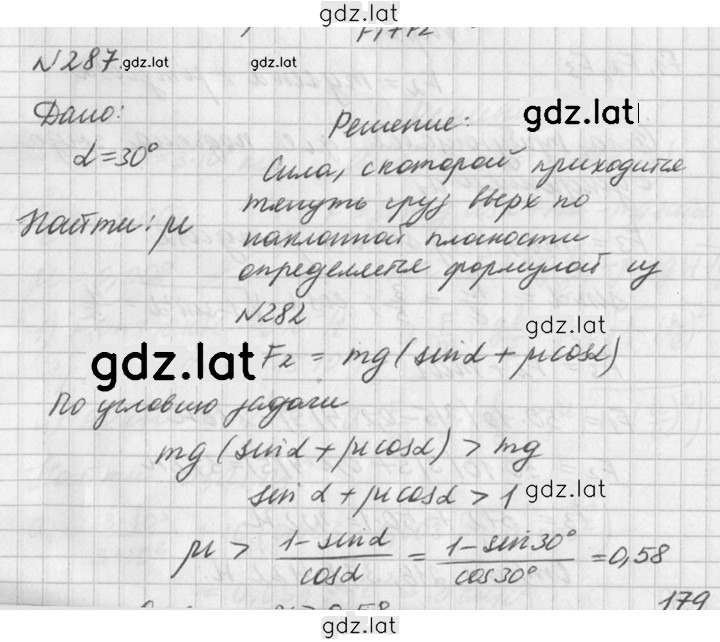 gdz.lat
F1+F2
№287. gdz.lat gdz.lat
Дано: gdz.lat
Решение:
α=30°
Сила, с которой приходится
Найти: μ
тянуть груз вверх по
наклонной плоскости
определяется формулой из
№282
gdz.lat
gdz.lat F₂ = mg(sinα + μcosα)
По условию задачи
mg(sinα + μcosα) > mg
sinα + μcosα > 1 gdz.lat
μ > (1-sinα)/cosα = (1-sin30°)/cos30° = 0,58
179
gdz.lat